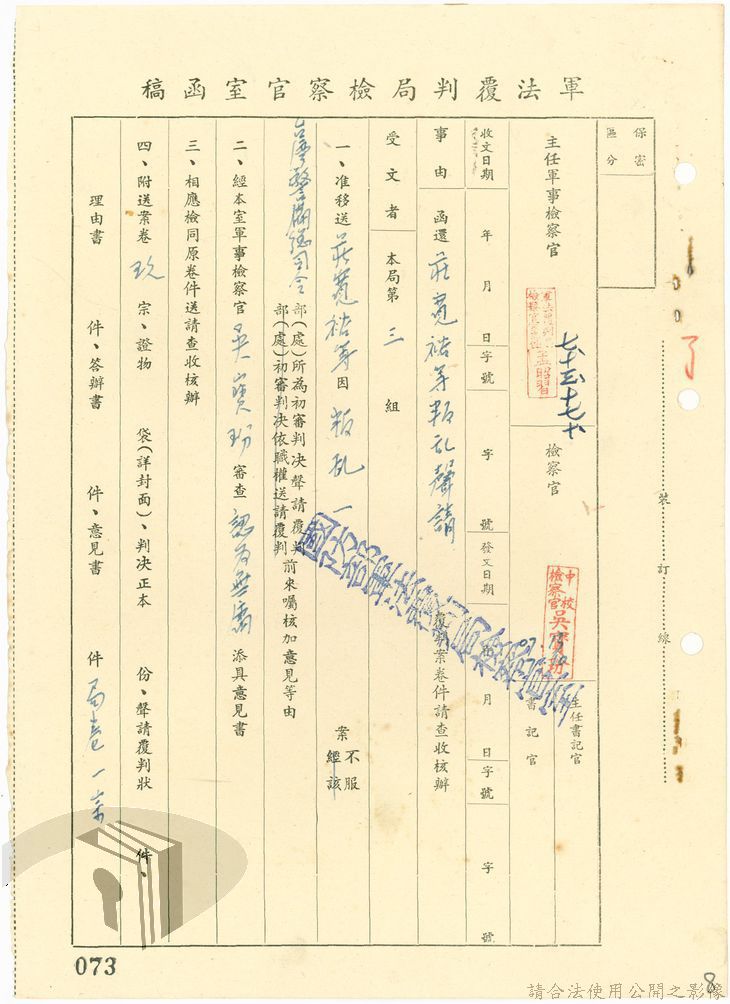 軍法覆判局檢察官室函稿
保密區分
主任軍事檢察官
檢察官
主任書記官
書記官
中校檢察官吳寶玢
收文日期 年 月 日 字號 字 號
發文日期 年 月 日 字號 字 號
事由 函還 莊寬裕等叛乱聲請 覆判案卷件請查收核辦
受文者 本局第三組
一、准移送 莊寬裕等因 叛乱一 案 不服 經該
台灣警備總司令 部(處)所為初審判決聲請覆判 部(處)初審判決依職權送請覆判 前來囑核加意見等由
二、經本室軍事檢察官 吳寶玢 審查 認為無庸 添具意見書
三、相應檢同原卷件送請查收核辦
四、附送案卷 玖 宗、證物 袋(詳封面)、判決正本 份、聲請覆判狀 件、
理由書 件、答辯書 件、意見書 件 局卷一宗
國防部軍法覆判局檢察官室
裝訂線
073
8
請合法使用公開之影像